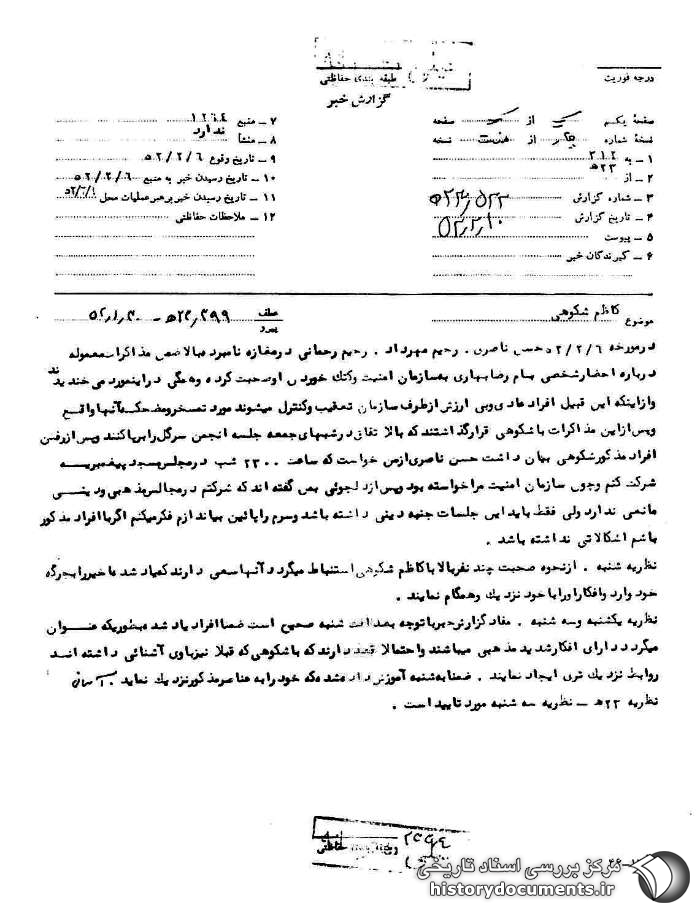 درجه فوریت
طبقه بندی حفاظتی
گزارش خبر
صفحهٔ یکم از یک صفحه
نسخهٔ شماره از هشت نسخه
۱ – به ۳۱۲
۲ – از ۲۳ ه‍
۳ – شماره گزارش
۴ – تاریخ گزارش ۵۲٫۲٫۱۰
۵ – پیوست
۶ – گیرندگان خبر
۷ – منبع
۸ – منشأ ندارد
۹ – تاریخ وقوع ۵۲/۲/۶
۱۰ – تاریخ رسیدن خبر به منبع ۵۲/۲/۶
۱۱ – تاریخ رسیدن خبر برهبر عملیات محل
۱۲ – ملاحظات حفاظتی
موضوع کاظم شکوهی
عطف
پیرو
درمورخه ۵۲/۲/۶ حسن ناصری . رحیم مهرداد . رحیم رحمانی درمغازه نامبرده بالا ضمن مذاکرات معموله
درباره احضار شخصی بنام رضا بهاری به سازمان امنیت وکتک خوردن اوصحبت کرده وهمگی دراینمورد می خندیدند
وازاینکه این قبیل افراد عادی وبی ارزش ازطرف سازمان تعقیب وکنترل میشوند مورد تمسخرومضحکه آنها واقع
وپس ازاین مذاکرات باشکوهی قرارگذاشتند که بالاتفاق درشبهای جمعه جلسه انجمن سرگل رابرپاکنند وپس ازرفتن
افراد مذکورشکوهی بیان داشت حسن ناصری ازمن خواست که ساعت ۲۳۰۰ شب درمجلس مسجد پیغمبریه
شرکت کنم وچون سازمان امنیت مراخواسته بود وپس ازدلجوئی بمن گفته اند که شرکتم درمجالس مذهبی ودینی
مانعی ندارد ولی فقط باید این جلسات جنبه دینی داشته باشد وسرم راپائین بیاندازم فکرمیکنم اگرباافراد مذکور
باشم اشکالاتی نداشته باشد .
نظریه شنبه . ازنحوه صحبت چند نفربالا باکاظم شکوهی استنباط میگردد آنهاسعی دارند که یاد شده اخیررابجرگه
خود وارد وافکاراورابا خود نزدیك وهمگام نمایند .
نظریه یکشنبه وسه شنبه . مفاد گزارش خبرباتوجه بصداقت شنبه صحیح است ضمنا افراد یاد شده بطوریکه عنوان
میگردد دارای افکارشدید مذهبی میباشند واحتمالا قصد دارند که باشکوهی که قبلا نیزباوی آشنائی داشته اند
روابط نزدیك تری ایجاد نمایند . ضمنا به شنبه آموزش داده شده که خود رابه عناصرمذکورنزدیك نماید .
نظریه ۲۳ه‍ – نظریه سه شنبه مورد تایید است .
حفاظتی
مرکز بررسی اسناد تاریخی
historydocuments.ir